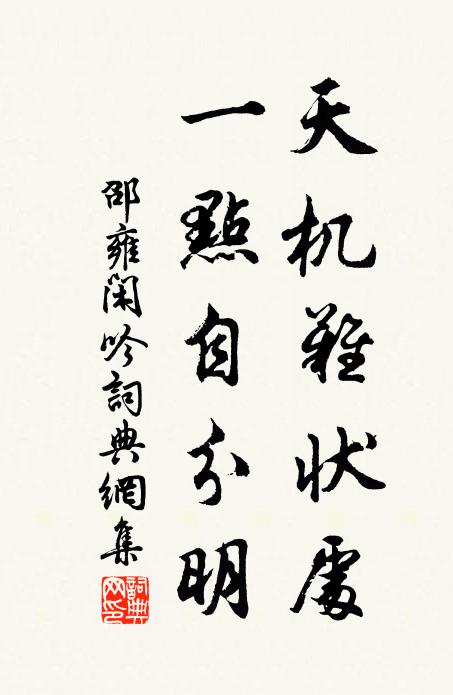 天机難状處
一點自分明
邵雍閑吟詞典網集
詞典网印